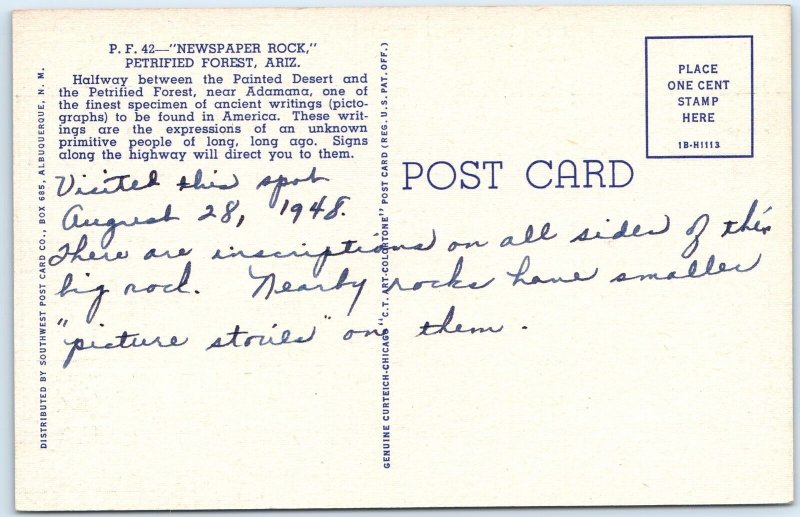 P. F. 42—"NEWSPAPER ROCK,"
PETRIFIED FOREST, ARIZ.
Halfway between the Painted Desert and
the Petrified Forest, near Adamana, one of
the finest specimen of ancient writings (picto-
graphs) to be found in America. These writ-
ings are the expressions of an unknown
primitive people of long, long ago. Signs
along the highway will direct you to them.
Visited this spot
August 28, 1948.
There are inscriptions on all sides of this
big rock. Nearby rocks have smaller
"picture stories" on them.
DISTRIBUTED BY SOUTHWEST POST CARD CO., BOX 685, ALBUQUERQUE, N. M.
GENUINE CURTEICH-CHICAGO "C.T. ART-COLORTONE" POST CARD (REG. U.S. PAT. OFF.)
POST CARD
PLACE
ONE CENT
STAMP
HERE
1B-H1113